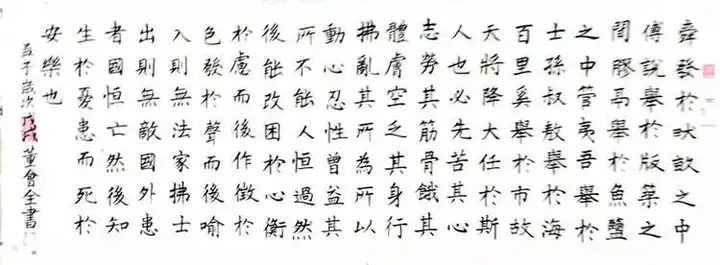 舜發於畎畝之中
傅說舉於版築之
間膠鬲舉於魚鹽
之中管夷吾舉於
士孫叔敖舉於海
百里奚舉於市故
天將降大任於斯
人也必先苦其心
志勞其筋骨餓其
體膚空乏其身行
拂亂其所為所以
動心忍性曾益其
所不能人恒過然
後能改困於心衡
於慮而後作徵於
色發於聲而後喻
入則無法家拂士
出則無敵國外患
者國恒亡然後知
生於憂患而死於
安樂也
孟子歲次戊戌董會全書